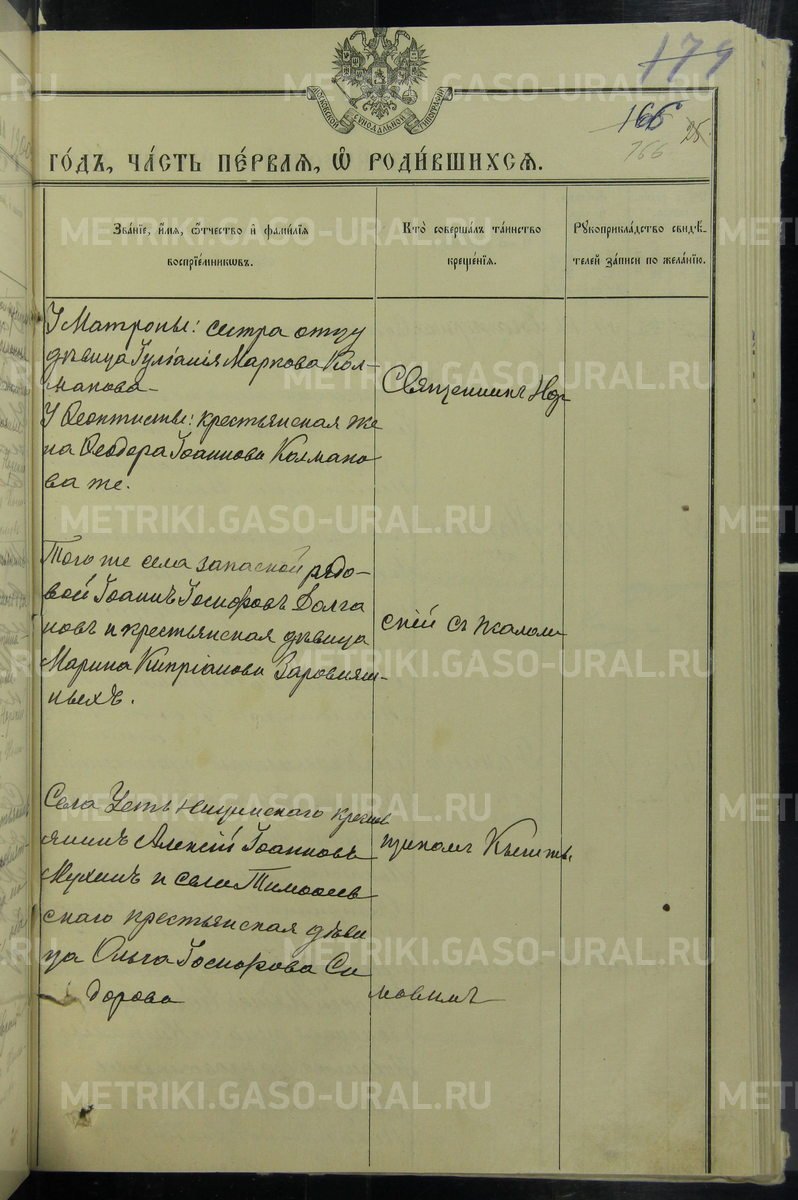 179
166
166
25.
МОСКОВСКОЙ СѴНОДАЛЬНОЙ ТИПОГРАФІИ
ГО́ДЪ, ЧА́СТЬ ПЕ́РВАѦ, Ѽ РОДИ́ВШИХСѦ.
Зва́нїе, и҆́мѧ, ѻ҆́тчество и҆ фами́лїѧ
воспрїе́мникѡвъ.
Кто̀ соверша́лъ та́инство
креще́нїѧ.
Рꙋкоприкла́дство свидѣ́-
телей за́писи по жела́нїю.
У Матроны: сестра отцу
дѣвица Іуліанія Маркова Кол-
макова
У Ѳеоктисты: крестьянская же
на Ѳеодора Іоаннова Колмако
ва же.
Священникъ
Того же села запасной рядо-
вой Іоаннъ Іосифовъ Долга
новъ и крестьянская дѣвица
Марина Кипріанова
ныхъ.
сій съ псалом
Села Усть Ницинскаго кресть
янинъ Алексій Іоанновъ
Мухинъ и села Тимоѳеев
скаго крестьянская дѣви
ца Ольга Іосифова Си
дорова
щикомъ
мовымъ
METRIKI.GASO-URAL.RU